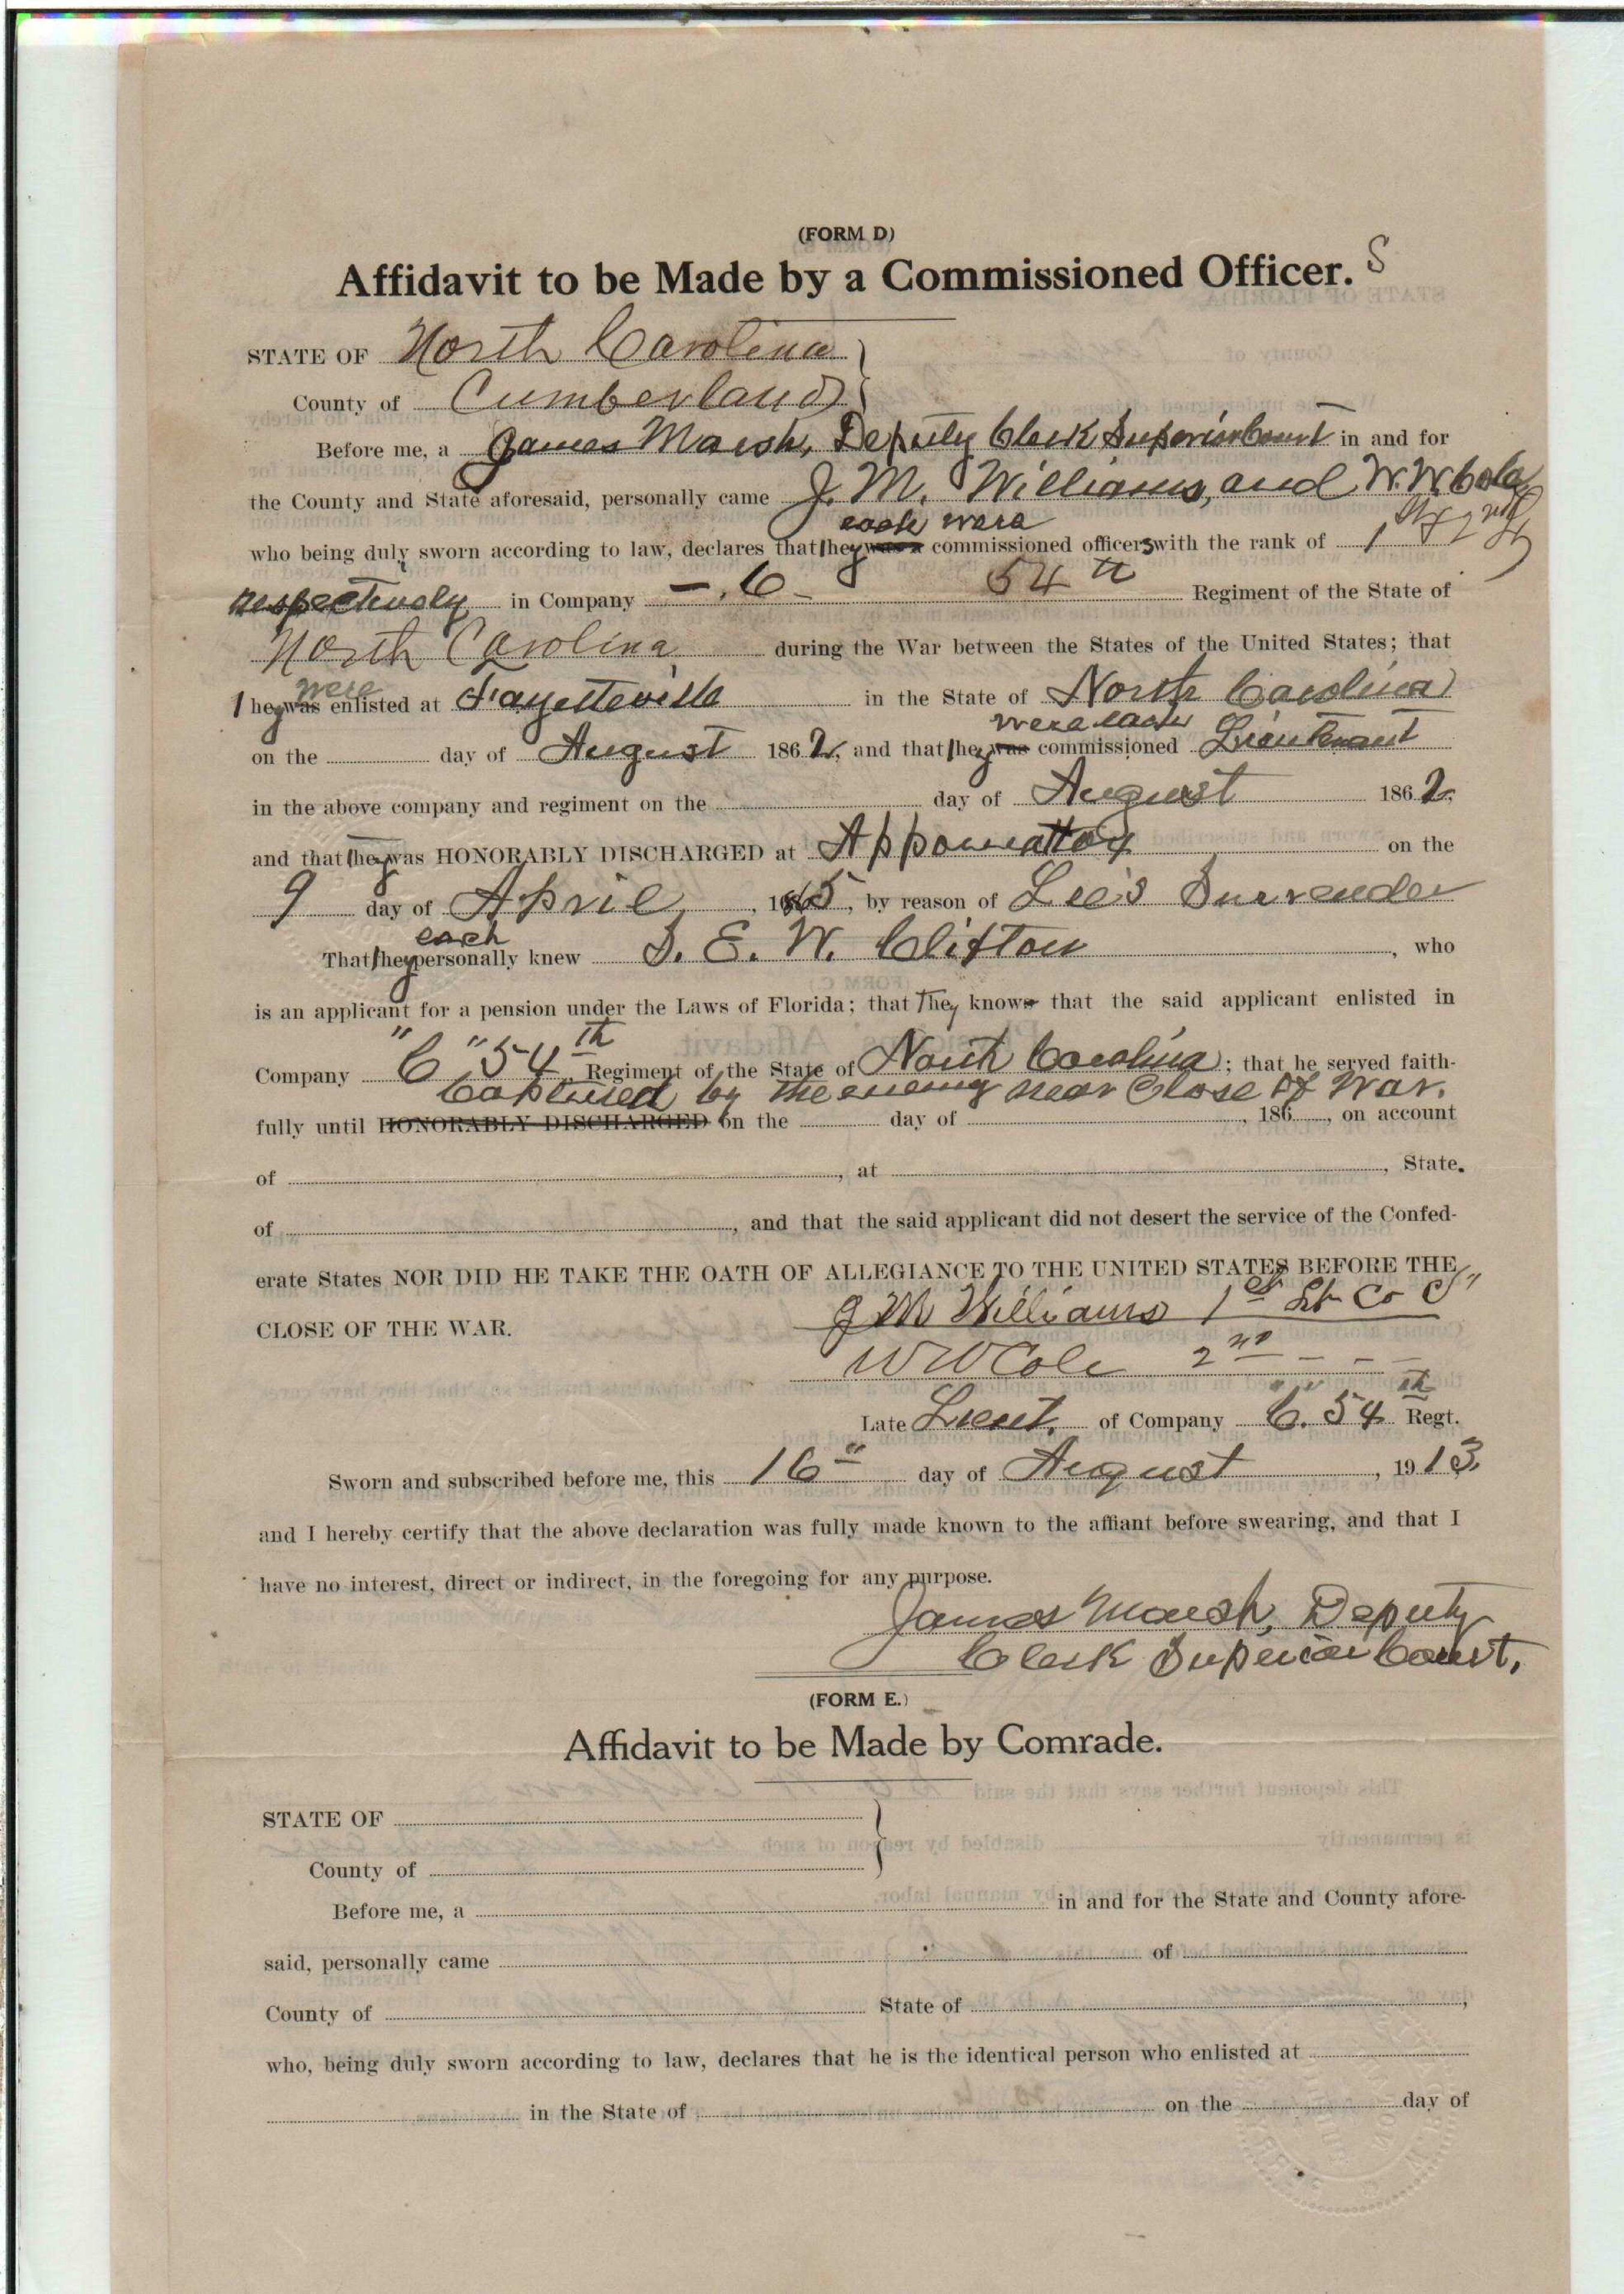 (FORM D)
Affidavit to be Made by a Commissioned Officer. S
STATE OF North Carolina
County of Cumberland
Before me, a James Marsh, Deputy Clerk Superior Court in and for
the County and State aforesaid, personally came J. M. Williams, and W. W. Cole
each were
who being duly sworn according to law, declares that they was a commissioned officers with the rank of 1st & 2nd Lt
respectively in Company C 54th Regiment of the State of
North Carolina during the War between the States of the United States; that
were
they was enlisted at Fayetteville in the State of North Carolina
were each
on the day of August 1862, and that they was commissioned Lieutenant
in the above company and regiment on the day of August 1862,
and that they was HONORABLY DISCHARGED at Appomattox on the
9 day of April, 1865, by reason of Lee's Surrender
each
That they personally knew S. E. W. Clifton, who
is an applicant for a pension under the Laws of Florida; that They knows that the said applicant enlisted in
Company "C" 54th Regiment of the State of North Carolina; that he served faith-
Captured by the enemy near Close of War.
fully until HONORABLY DISCHARGED on the day of , 186 , on account
of , at , State.
of , and that the said applicant did not desert the service of the Confed-
erate States NOR DID HE TAKE THE OATH OF ALLEGIANCE TO THE UNITED STATES BEFORE THE
CLOSE OF THE WAR.
J M Williams 1st Lt Co C"
W W Cole 2nd - - -
Late Lieut. of Company "C." 54th Regt.
Sworn and subscribed before me, this 16" day of August, 1913,
and I hereby certify that the above declaration was fully made known to the affiant before swearing, and that I
have no interest, direct or indirect, in the foregoing for any purpose.
James Marsh, Deputy
Clerk Superior Court.
(FORM E.)
Affidavit to be Made by Comrade.
STATE OF
County of
Before me, a in and for the State and County afore-
said, personally came of
County of State of ,
who, being duly sworn according to law, declares that he is the identical person who enlisted at
in the State of on the day of